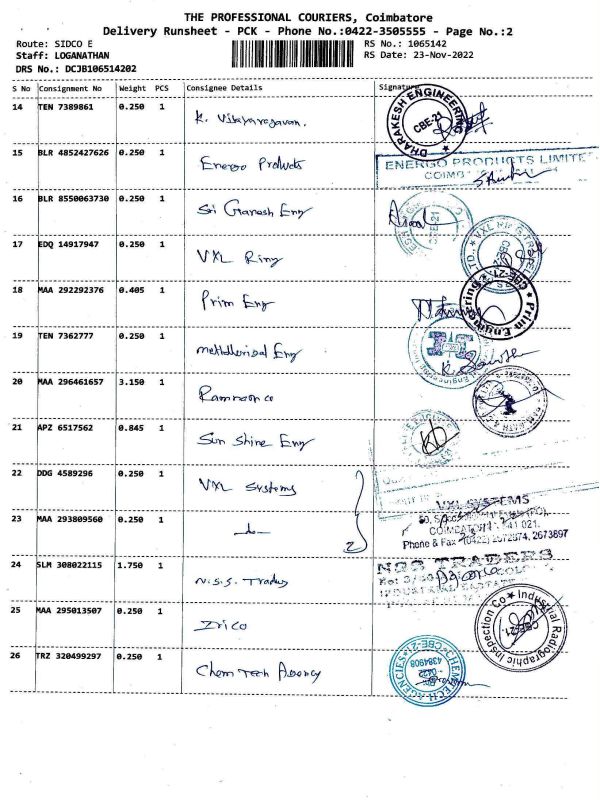 THE PROFESSIONAL COURIERS, Coimbatore
Delivery Runsheet - PCK - Phone No.:0422-3505555 - Page No.:2
Route: SIDCO E RS No.: 1065142
Staff: LOGANATHAN RS Date: 23-Nov-2022
DRS No.: DCJB106514202
S No Consignment No Weight PCS Consignee Details Signature
14 TEN 7389861 0.250 1
K. Vijayaragavan.
DHARAKESH ENGINEERING CBE-21
15 BLR 4852427626 0.250 1
Energo Products
ENERGO PRODUCTS LIMITE
16 BLR 8550063730 0.250 1
Sri Ganesh Eng
17 EDQ 14917947 0.250 1
VXL Ring
18 MAA 292292376 0.405 1
Prim Eng
Prim Engineering CBE-21
19 TEN 7362777 0.250 1
metallurigal Eng
20 MAA 296461657 3.150 1
21 APZ 6517562 0.845 1
Sun Shine Eng
22 DDG 4589296 0.250 1
VXL Systems
VXL SYSTEMS
23 MAA 293809560 0.250 1
COIMBATORE 641 021.
Phone & Fax (0422) 2672874, 2673897
24 SLM 308022115 1.750 1
N.S.S. Traders
NSS TRADERS
25 MAA 295013507 0.250 1
Irico
Industrial Radiographic Inspection Co CBE-21.
26 TRZ 320499297 0.250 1
Chem Tech Agency
CHEMTECH AGENCIES CBE-21 0422 4384908